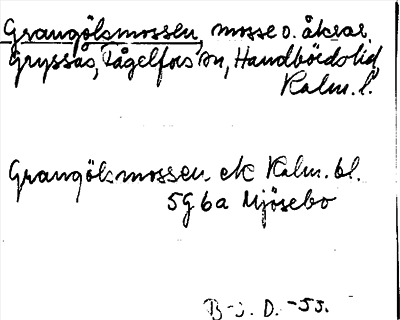 Grangölsmossen, mosse o. åkrar,
Gryssås, Fågelfors sn, Handbörds hd,
Kalm. l.
Grangölsmossen ek Kalm. bl.
5G 6a Mjösebo
B-s. D. -53.